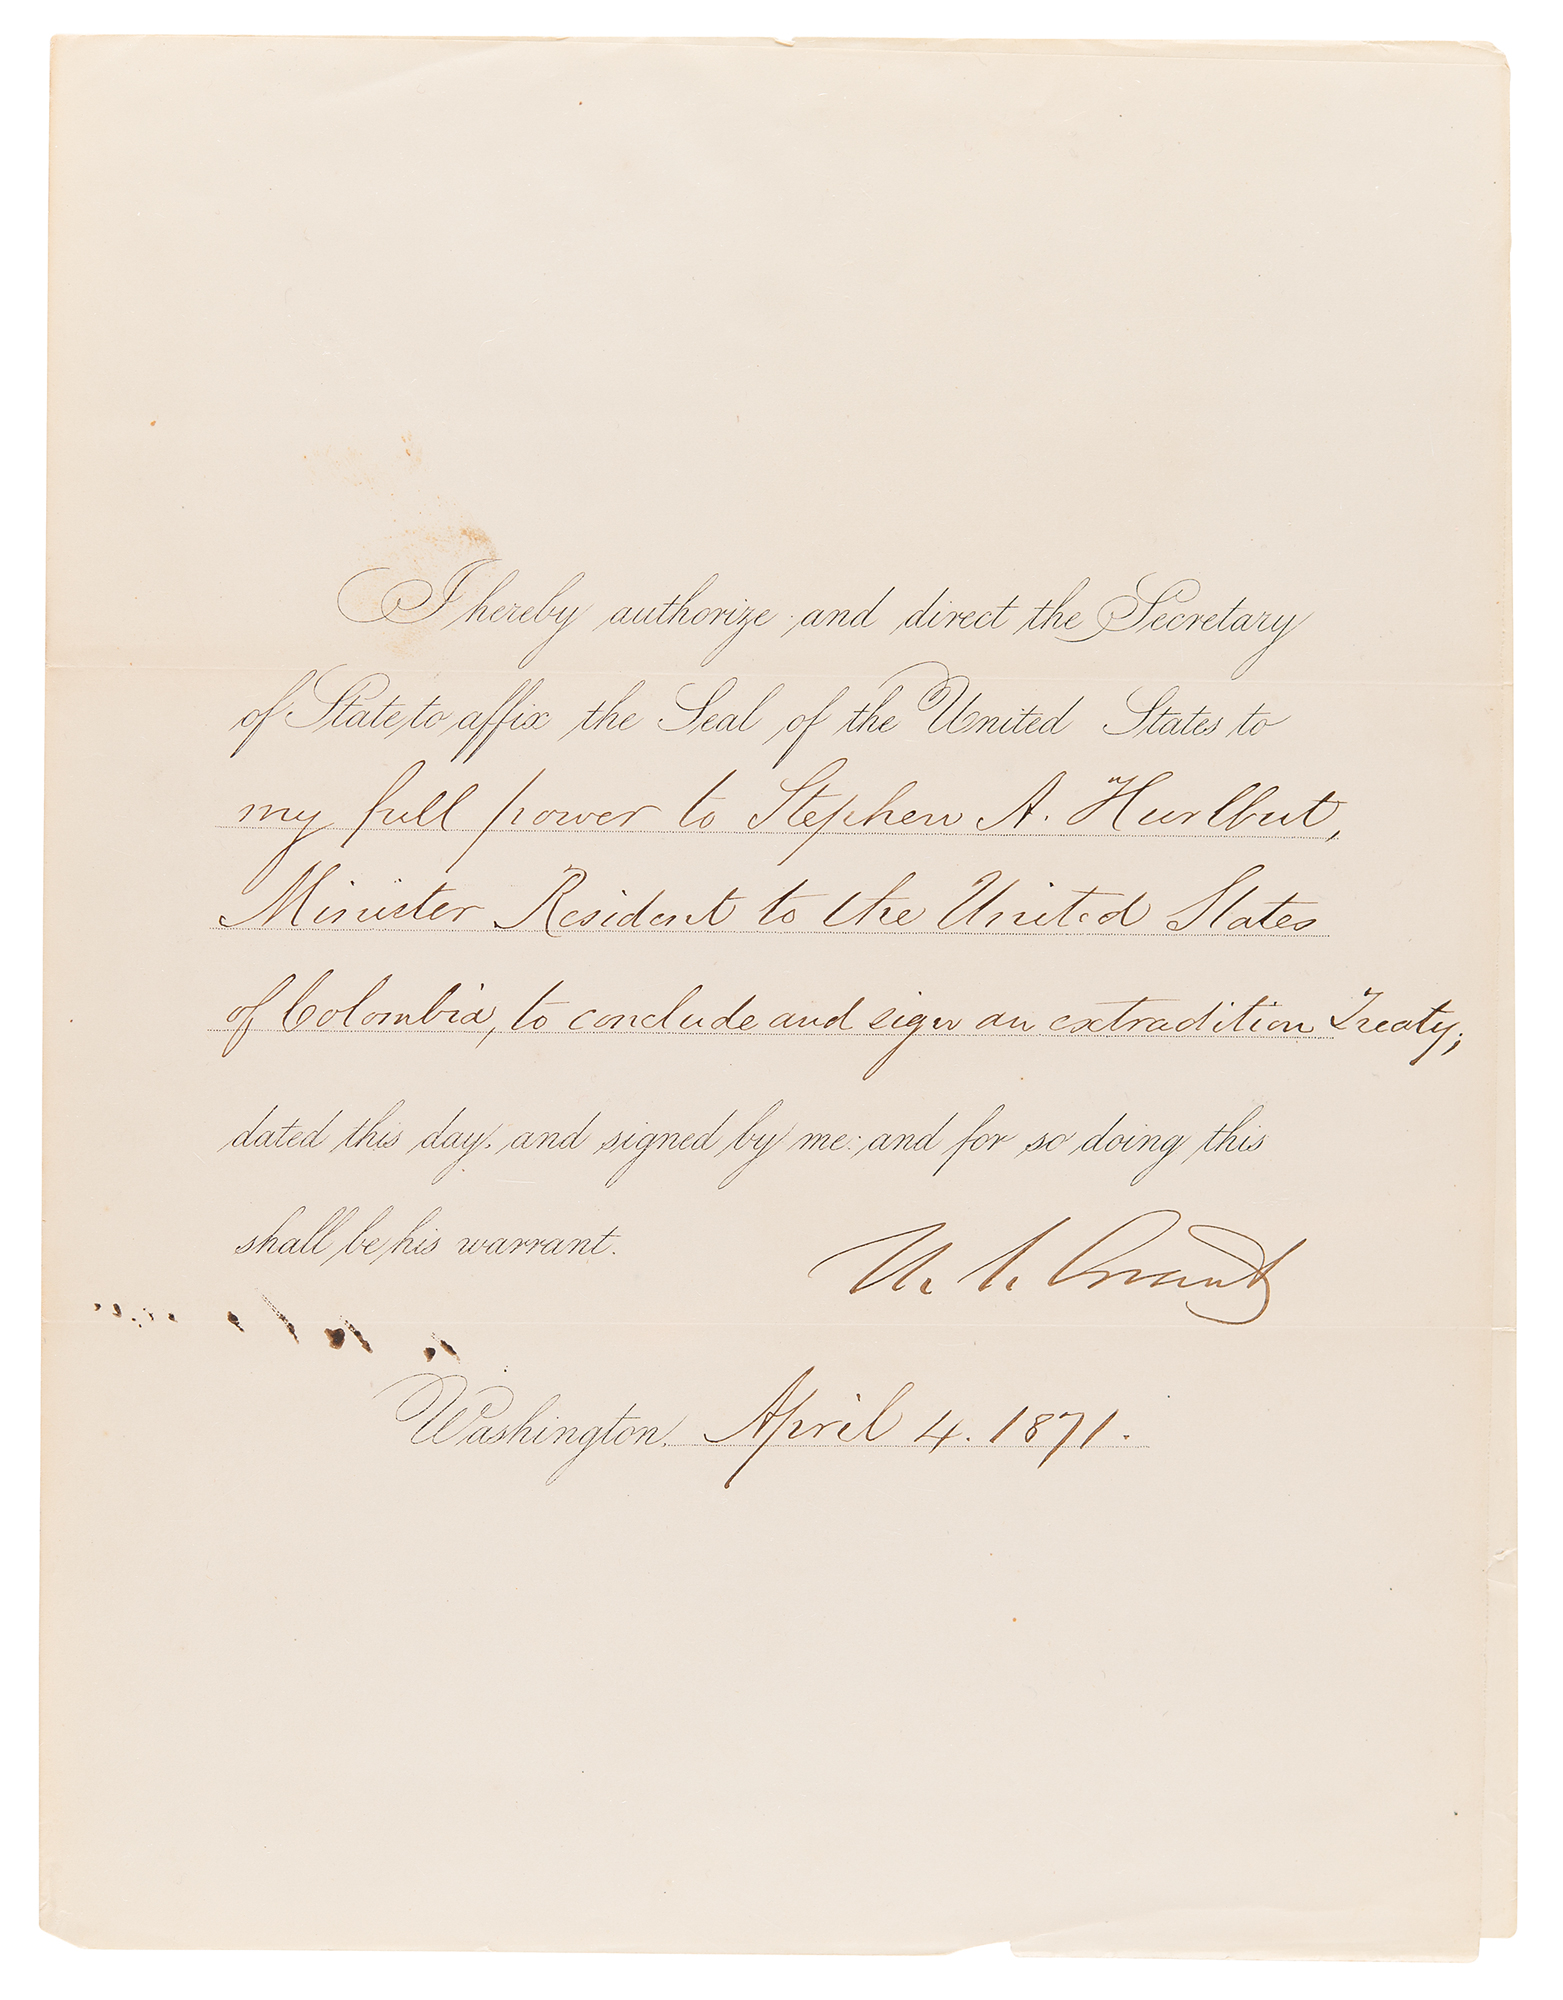 I hereby authorize and direct the Secretary
of State to affix the Seal of the United States to
my full power to Stephen A. Hurlbut,
Minister Resident to the United States
of Colombia, to conclude and sign an extradition Treaty;
dated this day, and signed by me: and for so doing this
shall be his warrant.
U. S. Grant
Washington, April 4. 1871.